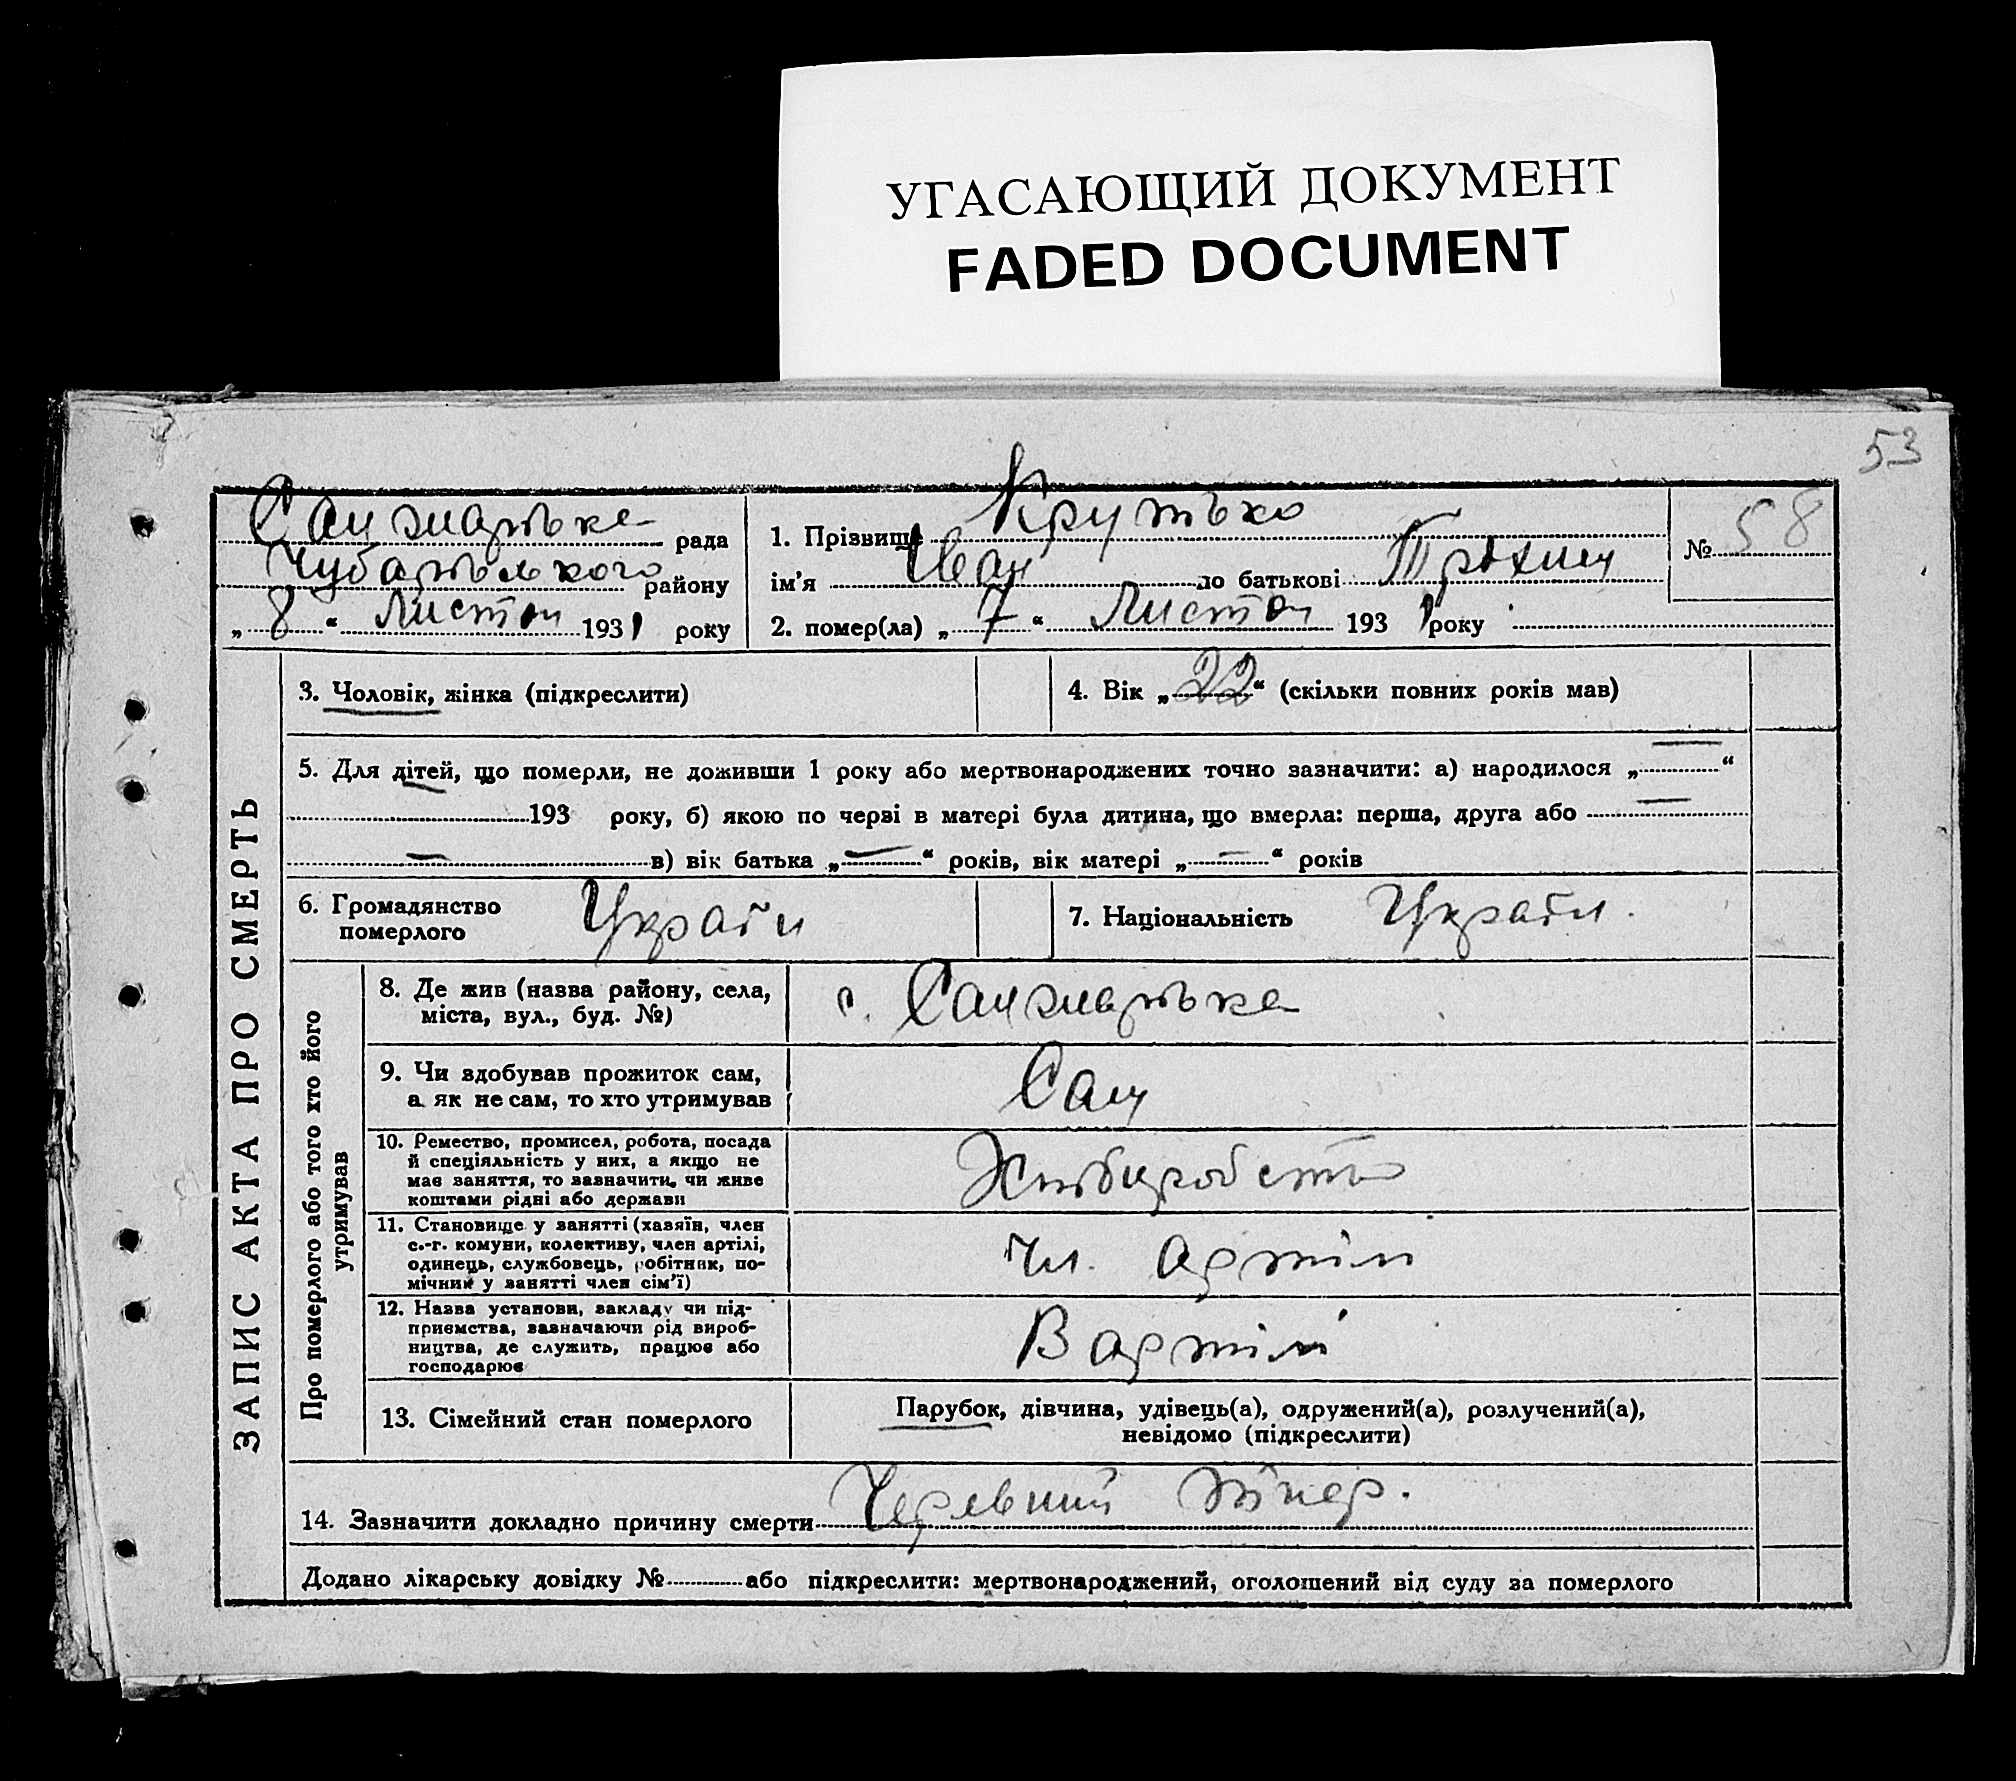 УГАСАЮЩИЙ ДОКУМЕНТ
FADED DOCUMENT
53
Санжарівка рада
Чубарівського району
„ 8 “ Листоп 1931 року
1. Прізвище Крутько
ім’я Іван по батькові Трохим
№ 58
2. помер(ла) „ 7 “ Листоп 1931 року
ЗАПИС АКТА ПРО СМЕРТЬ
3. Чоловік, жінка (підкреслити)
4. Вік „ 22 “ (скільки повних років мав)
5. Для дітей, що померли, не доживши 1 року або мертвонароджених точно зазначити: а) народилося „ — “
193 року, б) якою по черзі в матері була дитина, що вмерла: перша, друга або —
— в) вік батька „ — “ років, вік матері „ — “ років
6. Громадянство
померлого
Україн
7. Національність Україн.
Про померлого або того хто його
утримував
8. Де жив (назва району, села,
міста, вул., буд. №)
с. Санжарівка
9. Чи здобував прожиток сам,
а як не сам, то хто утримував
Сам
10. Ремество, промисел, робота, посада
й спеціяльність у них, а якщо не
має заняття, то зазначити, чи живе
коштами рідні або держави
11. Становище у занятті (хазяїн, член
с.-г. комуни, колективу, член артілі,
одинець, службовець, робітник, по-
мічний у занятті член сім’ї)
Чл. артіли
12. Назва установи, закладу чи під-
приємства, зазначаючи рід вироб-
ництва, де служить, працює або
господарює
В артілі
13. Сімейний стан померлого
Парубок, дівчина, удівець(а), одружений(а), розлучений(а),
невідомо (підкреслити)
14. Зазначити докладно причину смерти Черевний
Додано лікарську довідку № або підкреслити: мертвонароджений, оголошений від суду за померлого